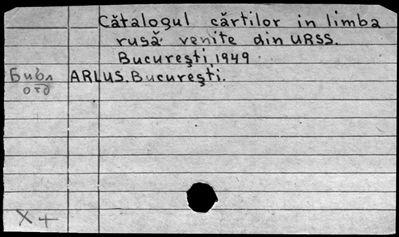 Cătalogul cărtilor in limba
rusă venite din URSS.
Bucureşti 1949
Библ ARLUS. Bucureşti.
отд
X +